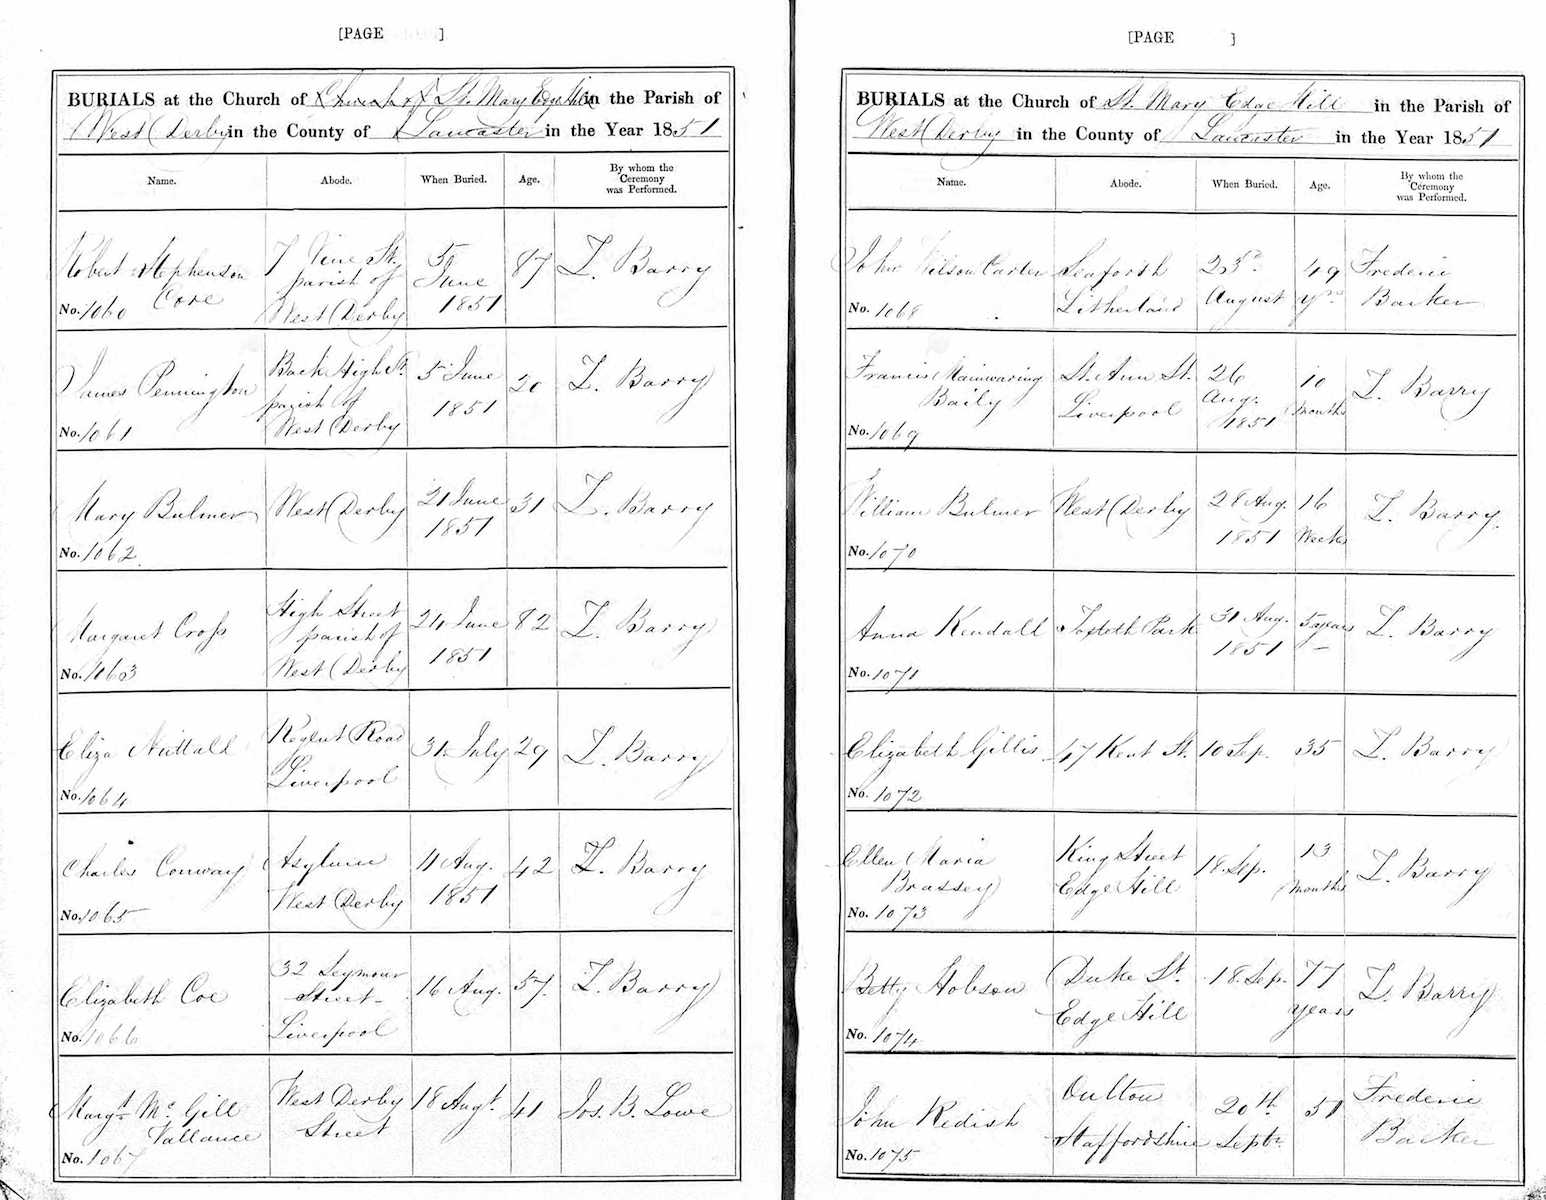 [PAGE ]
BURIALS at the Church of St. Mary Edge Hill in the Parish of
West Derby in the County of Lancaster in the Year 1851
Name. Abode. When Buried. Age. By whom the Ceremony was Performed.
Robert Stephenson
Core
No. 1060
7 Vine St.
parish of
West Derby
5
June
1851
87
T. Barry
James Pennington
No. 1061
Back High St.
parish of
West Derby
5 June
1851
20
T. Barry
Mary Bulmer
No. 1062
West Derby
21 June
1851
31
T. Barry
Margaret Cross
No. 1063
High Street
parish of
West Derby
24 June
1851
82
T. Barry
Eliza Nuttall
No. 1064
Regent Road
Liverpool
31 July
29
T. Barry
Charles Conway
No. 1065
Asylum
West Derby
4 Aug.
1851
42
T. Barry
Elizabeth Coe
No. 1066
32 Seymour
Street
Liverpool
16 Aug.
57
T. Barry
Margt. Mc. Gill
Vallance
No. 1067
West Derby
Street
18 Augt.
41
Jos. B. Lowe
[PAGE ]
BURIALS at the Church of St. Mary Edge Hill in the Parish of
West Derby in the County of Lancaster in the Year 1851
Name. Abode. When Buried. Age. By whom the Ceremony was Performed.
John Wilson Carter
No. 1068
Seaforth
Litherland
23rd
August
49
yrs
Frederic
Barker
Francis Mainwaring
Baily
No. 1069
St. Ann St.
Liverpool
26
Aug.
1851
10
months
T. Barry
William Bulmer
No. 1070
West Derby
28 Aug.
1851
16
Weeks
T. Barry
Anna Kendall
No. 1071
Toxteth Park
31 Aug.
1851
5 years
T. Barry
Elizabeth Gillis
No. 1072
47 Kent St.
10 Sep.
35
T. Barry
Ellen Maria
Brassey
No. 1073
King Street
Edge Hill
18. Sep.
13
months
T. Barry
Betty Hobson
No. 1074
Duke St.
Edge Hill
18. Sep.
77
years
T. Barry
John Redish
No. 1075
Oulton
Staffordshire
20th
Septr.
51
Frederic
Barker